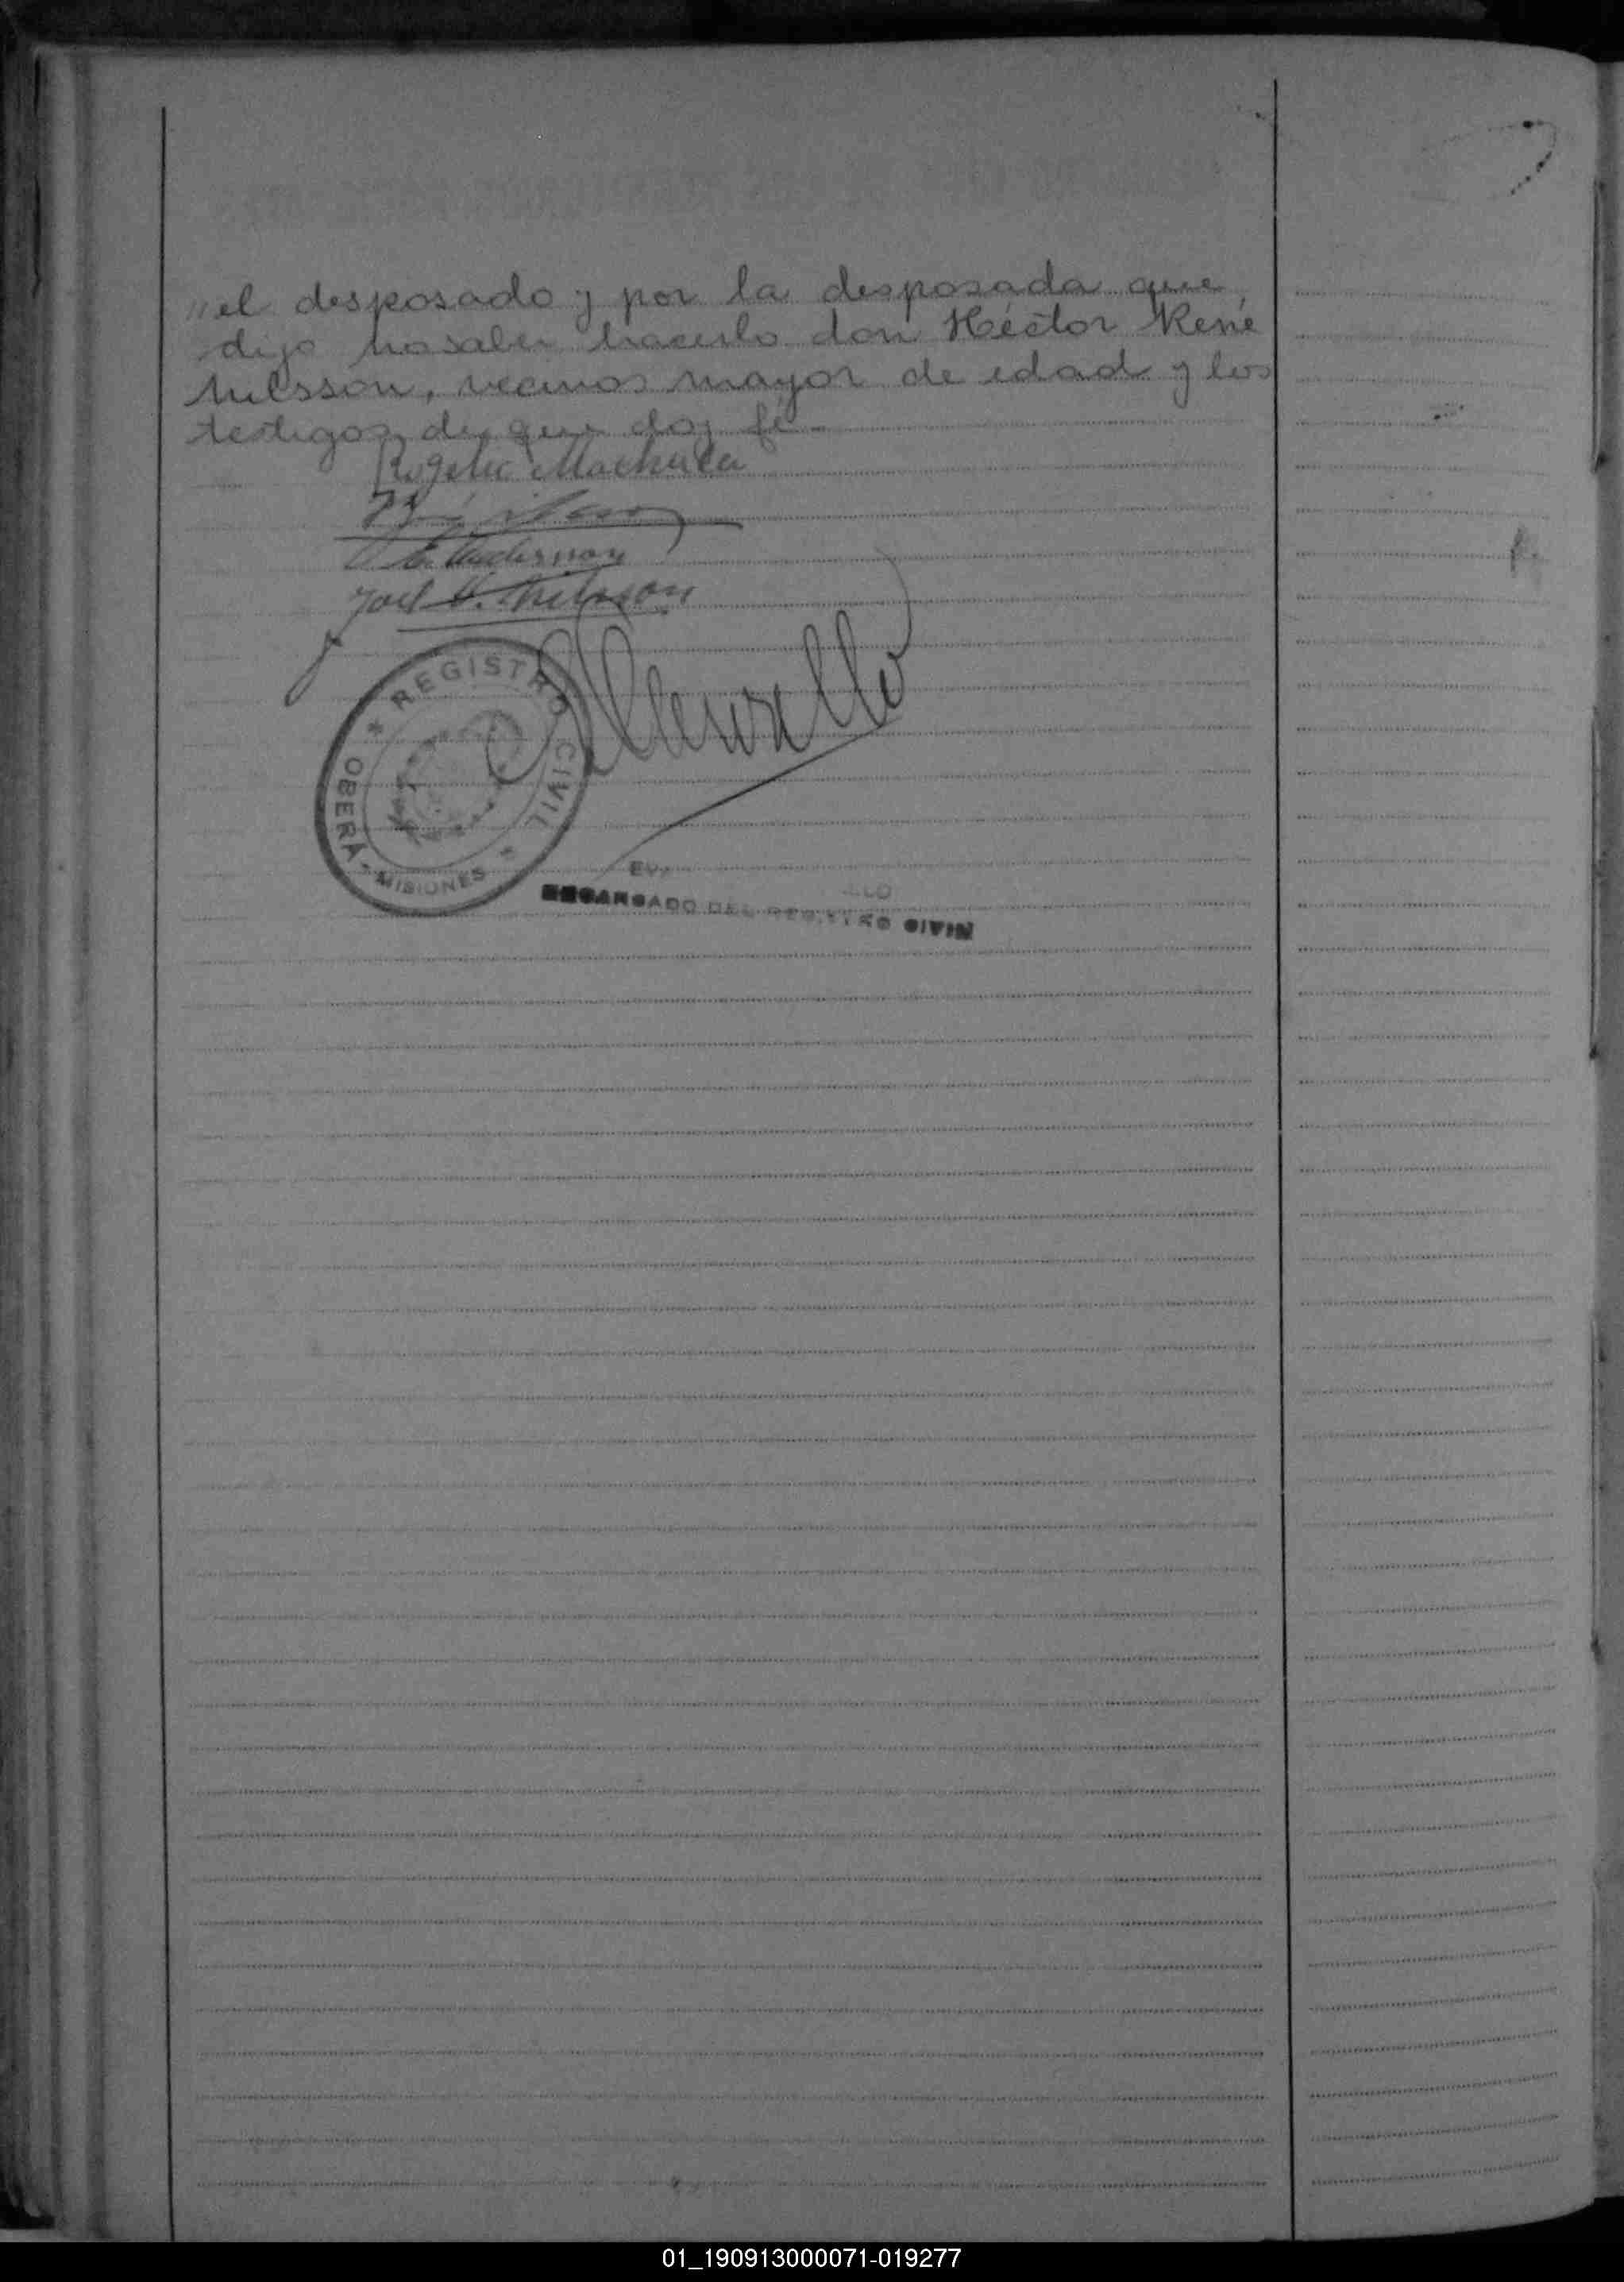 "el desposado y por la desposada que,
dijo no saber hacerlo don Héctor René
Nilsson, vecinos mayor de edad y los
testigos, de que doy fé -
Rogelio Machuca
E. Anderson
Joel A. Nilsson
REGISTRO CIVIL
OBERÁ - MISIONES
ENCARGADO DEL REGISTRO CIVIL
01_190913000071-019277